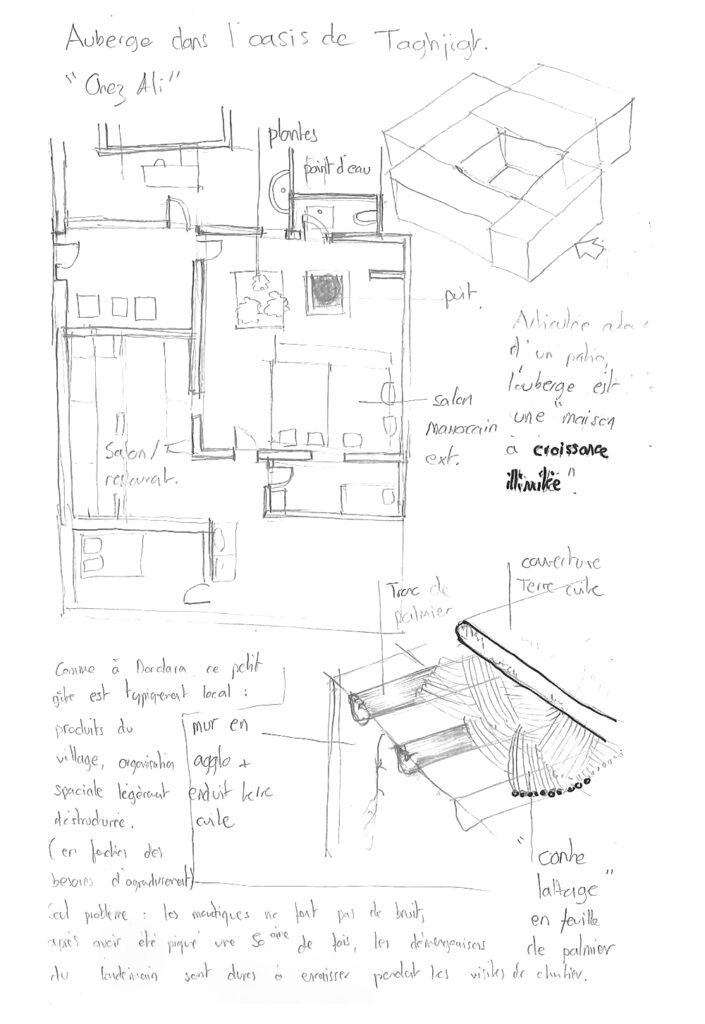 Auberge dans l'oasis de Taghjigt.
"Chez Ali"
plantes
point d'eau
puit.
Articulée
d'un patio,
l'auberge est
une "maison
à croissance
illimitée".
salon
marocain
ext.
Salon/
restaurat.
couverture
Terre cuite
Tronc de
palmier
Comme à Dardara ce petit
gîte est typiquement local :
produits du
village, organisation
spaciale légèrement
déstructurée.
(en fonction des
besoins d'agrandissement)
mur en
agglo +
enduit terre
cuite
"contre
lattage"
en feuille
de palmier
Seul problème : les moustiques ne font pas de bruit,
après avoir été piqué une 50aine de fois, les démangeaisons
du lendemain sont dures à encaisser pendant les visites de chantier.